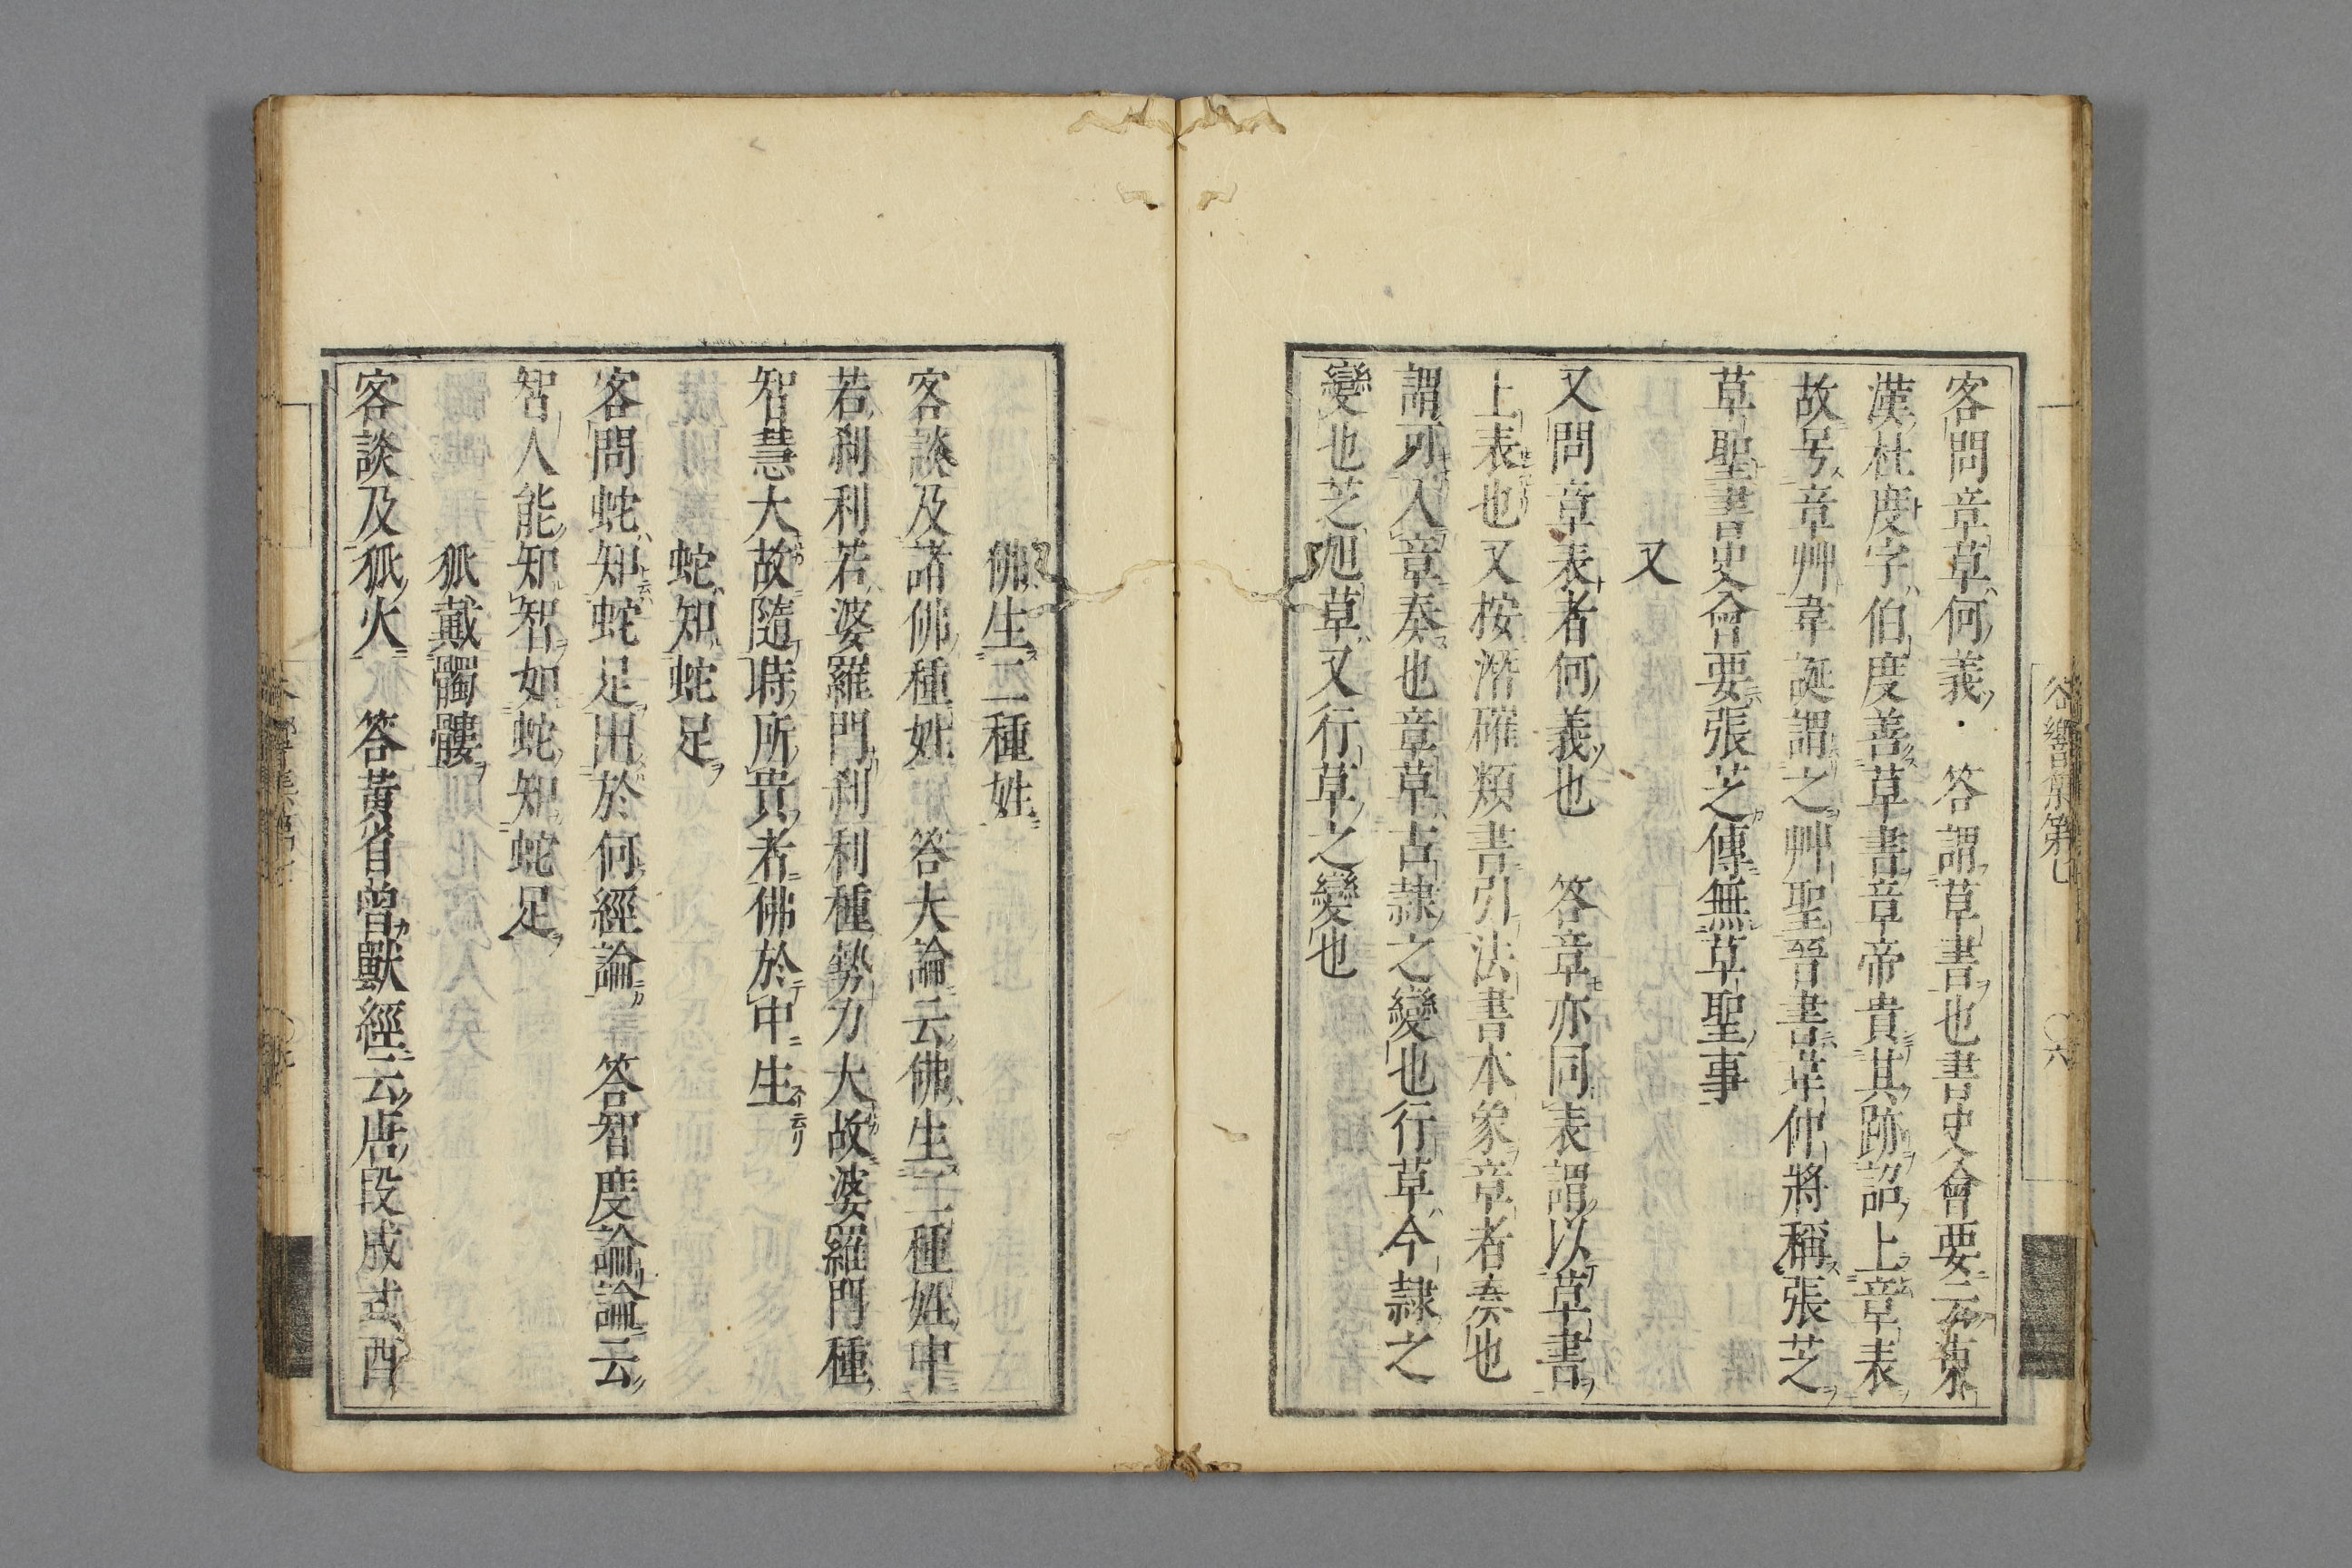 客問章草何義・答謂草書也書史會要云東
漢杜度字伯度善草書章帝貴其跡詔上章表
故号章艸韋誕謂之艸聖晉書韋仲將稱張芝
草聖書史會要張芝傳無草聖事
又
又問章表者何義也　答章亦同表謂以草書
上表也又按潛確類書引法書本象章者奏也
謂可入章奏也章草古隷之變也行草今隷之
變也芝旭草又行草之變也
佛生二種姓
客談及諸佛種姓　答大論云佛生二種姓中
若刹利若婆羅門刹利種勢力大故婆羅門種
智慧大故隨時所貴者佛於中生
蛇知蛇足
客問蛇知蛇足出於何經論　答智度論論云
智人能知智如蛇知蛇足
狐戴髑髏
客談及狐火　答黃省曾獸經云唐段成式酉
谷響集第七
〇六